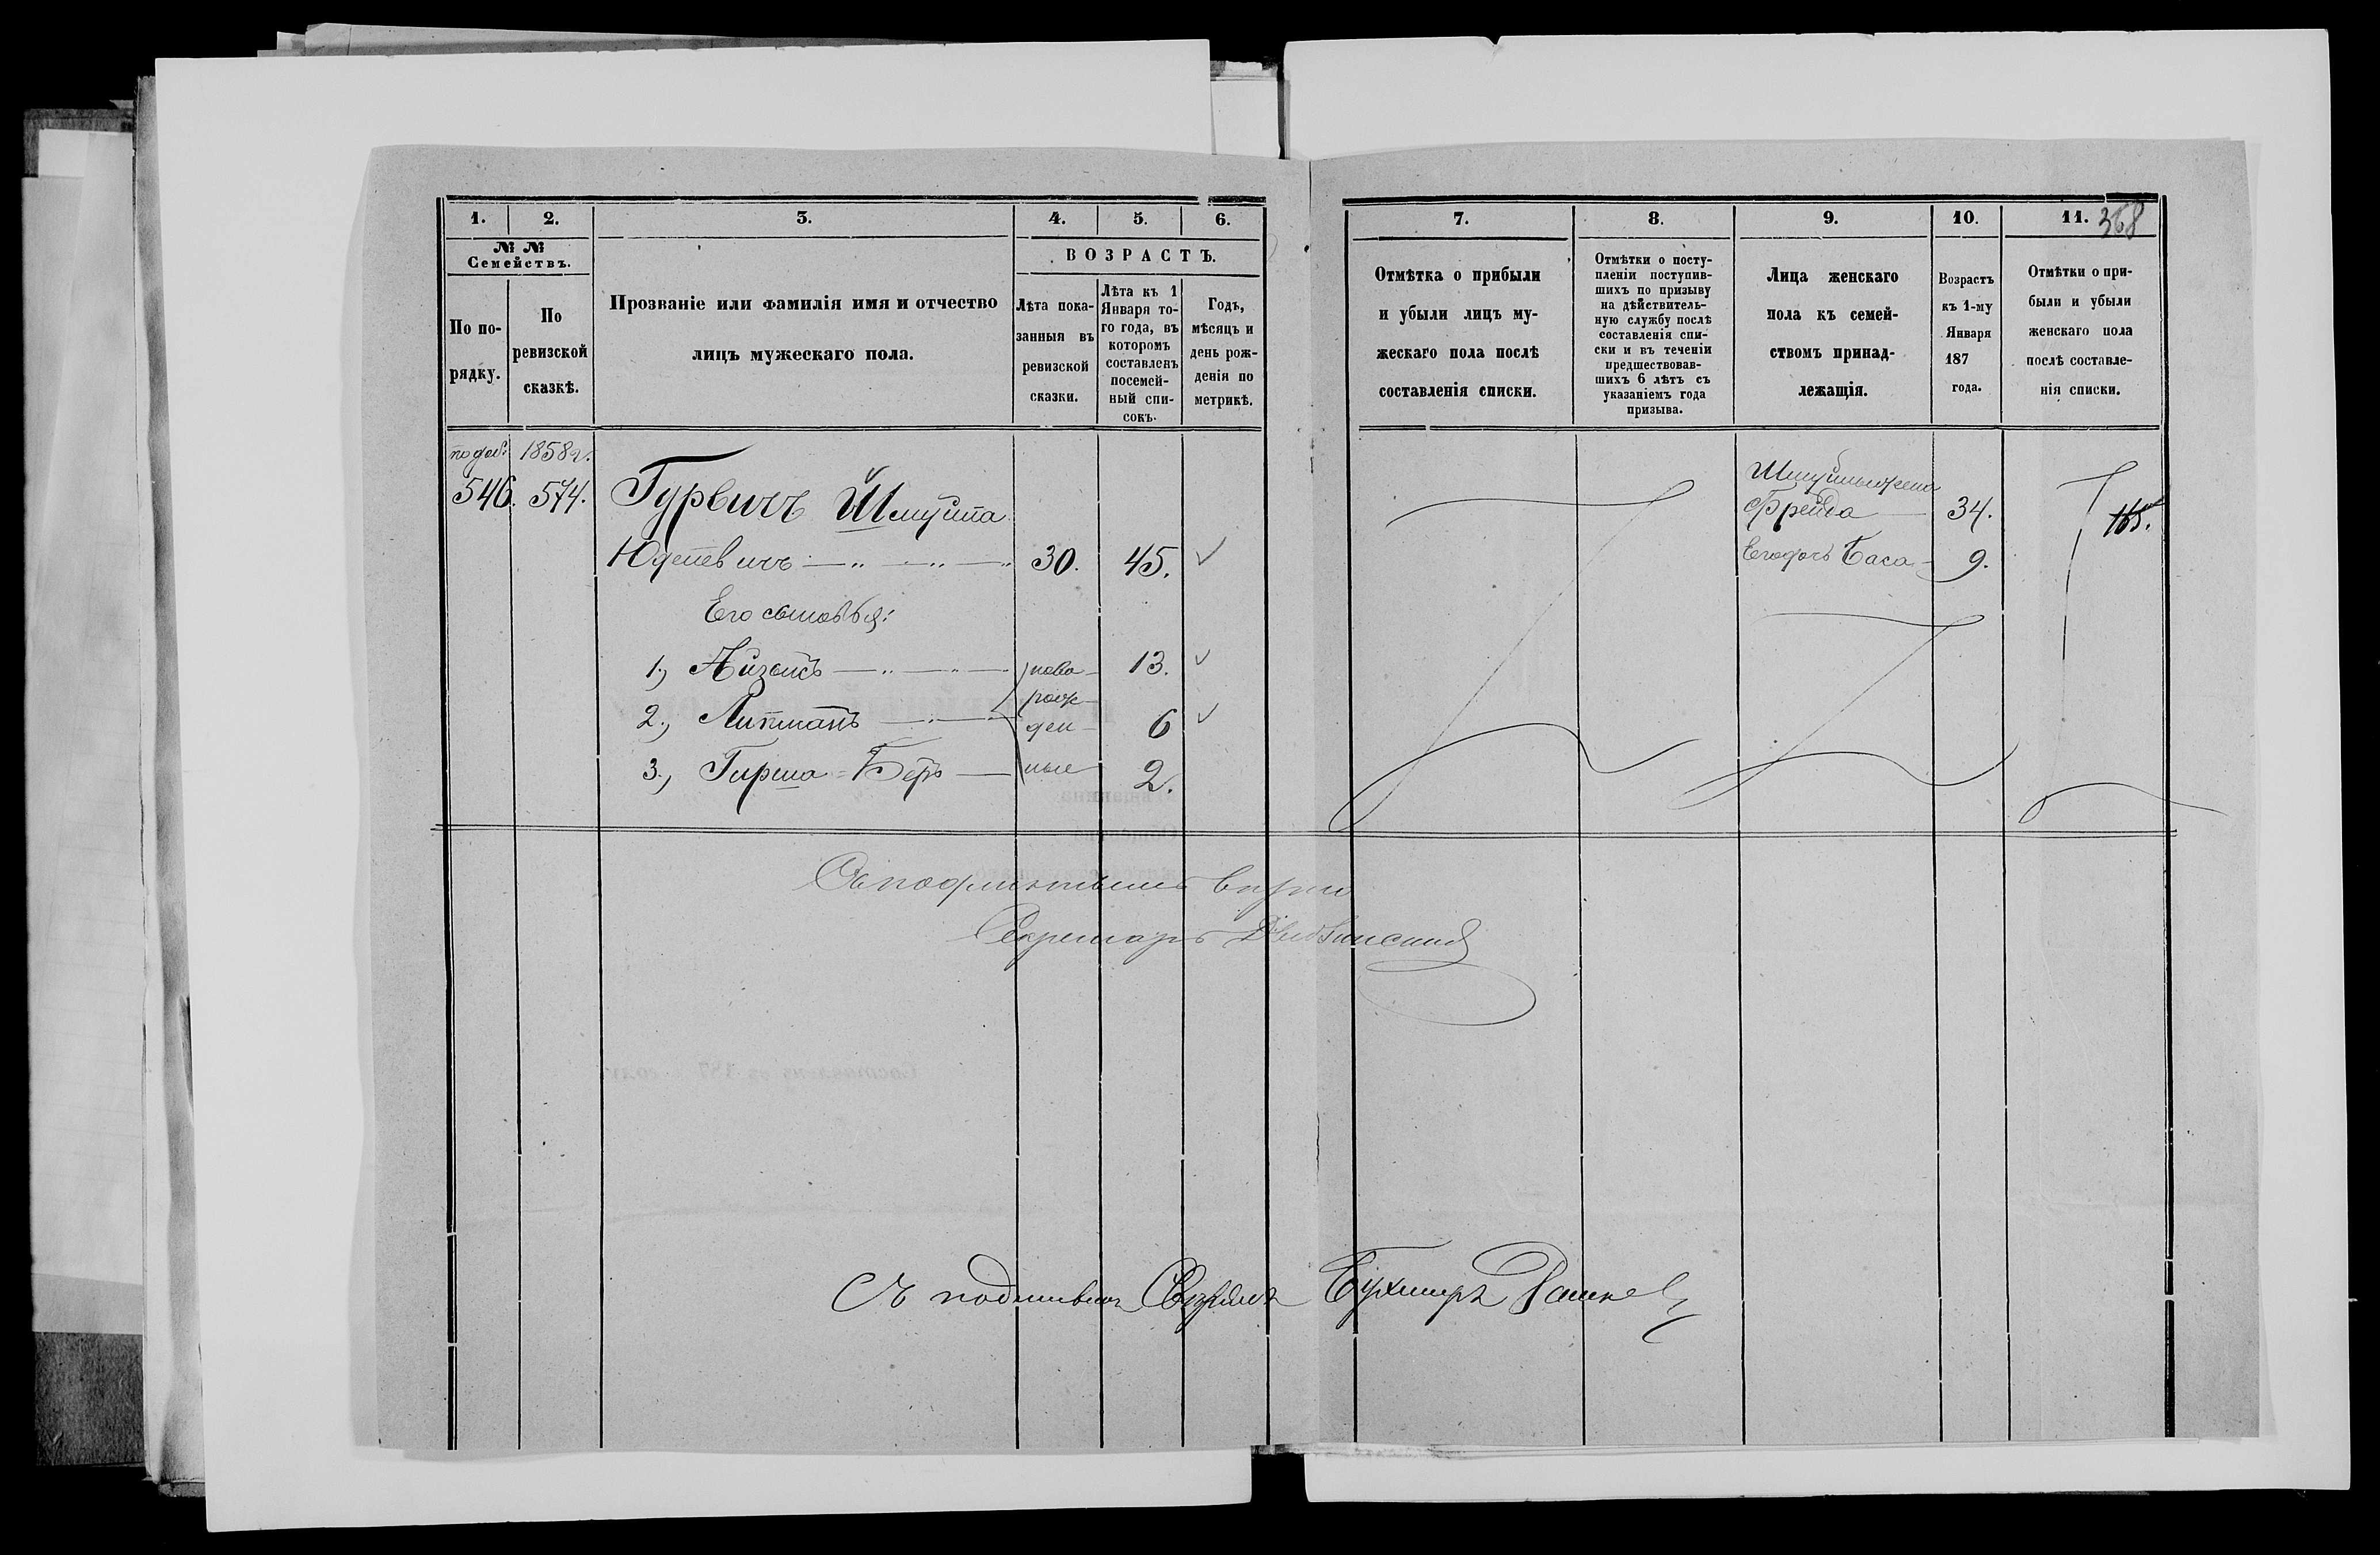 1. 2. 3. 4. 5. 6.
№ №
Семействъ.
По по-
рядку.
По
ревизской
сказкѣ.
Прозваніе или фамилія имя и отчество
лицъ мужескаго пола.
ВОЗРАСТЪ.
Лѣта пока-
занныя въ
ревизской
сказки.
Лѣта къ 1
Января то-
го года, въ
которомъ
составленъ
посемей-
ный спи-
сокъ.
Годъ,
мѣсяцъ и
день рож-
денія по
метрикѣ.
1858 г.
546. 574. Гурвичъ Шмуйла
Юделевичъ 30. 45.
Его сыновья:
1, Айзикъ 13.
2., Липманъ 6
3., Гирша-Беръ 2.
ново-
рож-
ден-
ные
7. 8. 9. 10. 11. 368
Отмѣтка о прибыли
и убыли лицъ му-
жескаго пола послѣ
составленія списки.
Отмѣтки о посту-
пленіи поступив-
шихъ по призыву
на дѣйствитель-
ную службу послѣ
составленія спи-
ски и въ теченіи
предшествовав-
шихъ 6 лѣтъ съ
указаніемъ года
призыва.
Лица женскаго
пола къ семей-
ствомъ принад-
лежащія.
Возрастъ
къ 1-му
Января
187
года.
Отмѣтки о при-
были и убыли
женскаго пола
послѣ составле-
нія списки.
Шмуйлы жена
Фрейда 34.
Его дочь Баса 9.
Съ подлиннымъ вѣрно
Секретарь
Съ подлиннымъ Свѣрялъ Бухгалтеръ